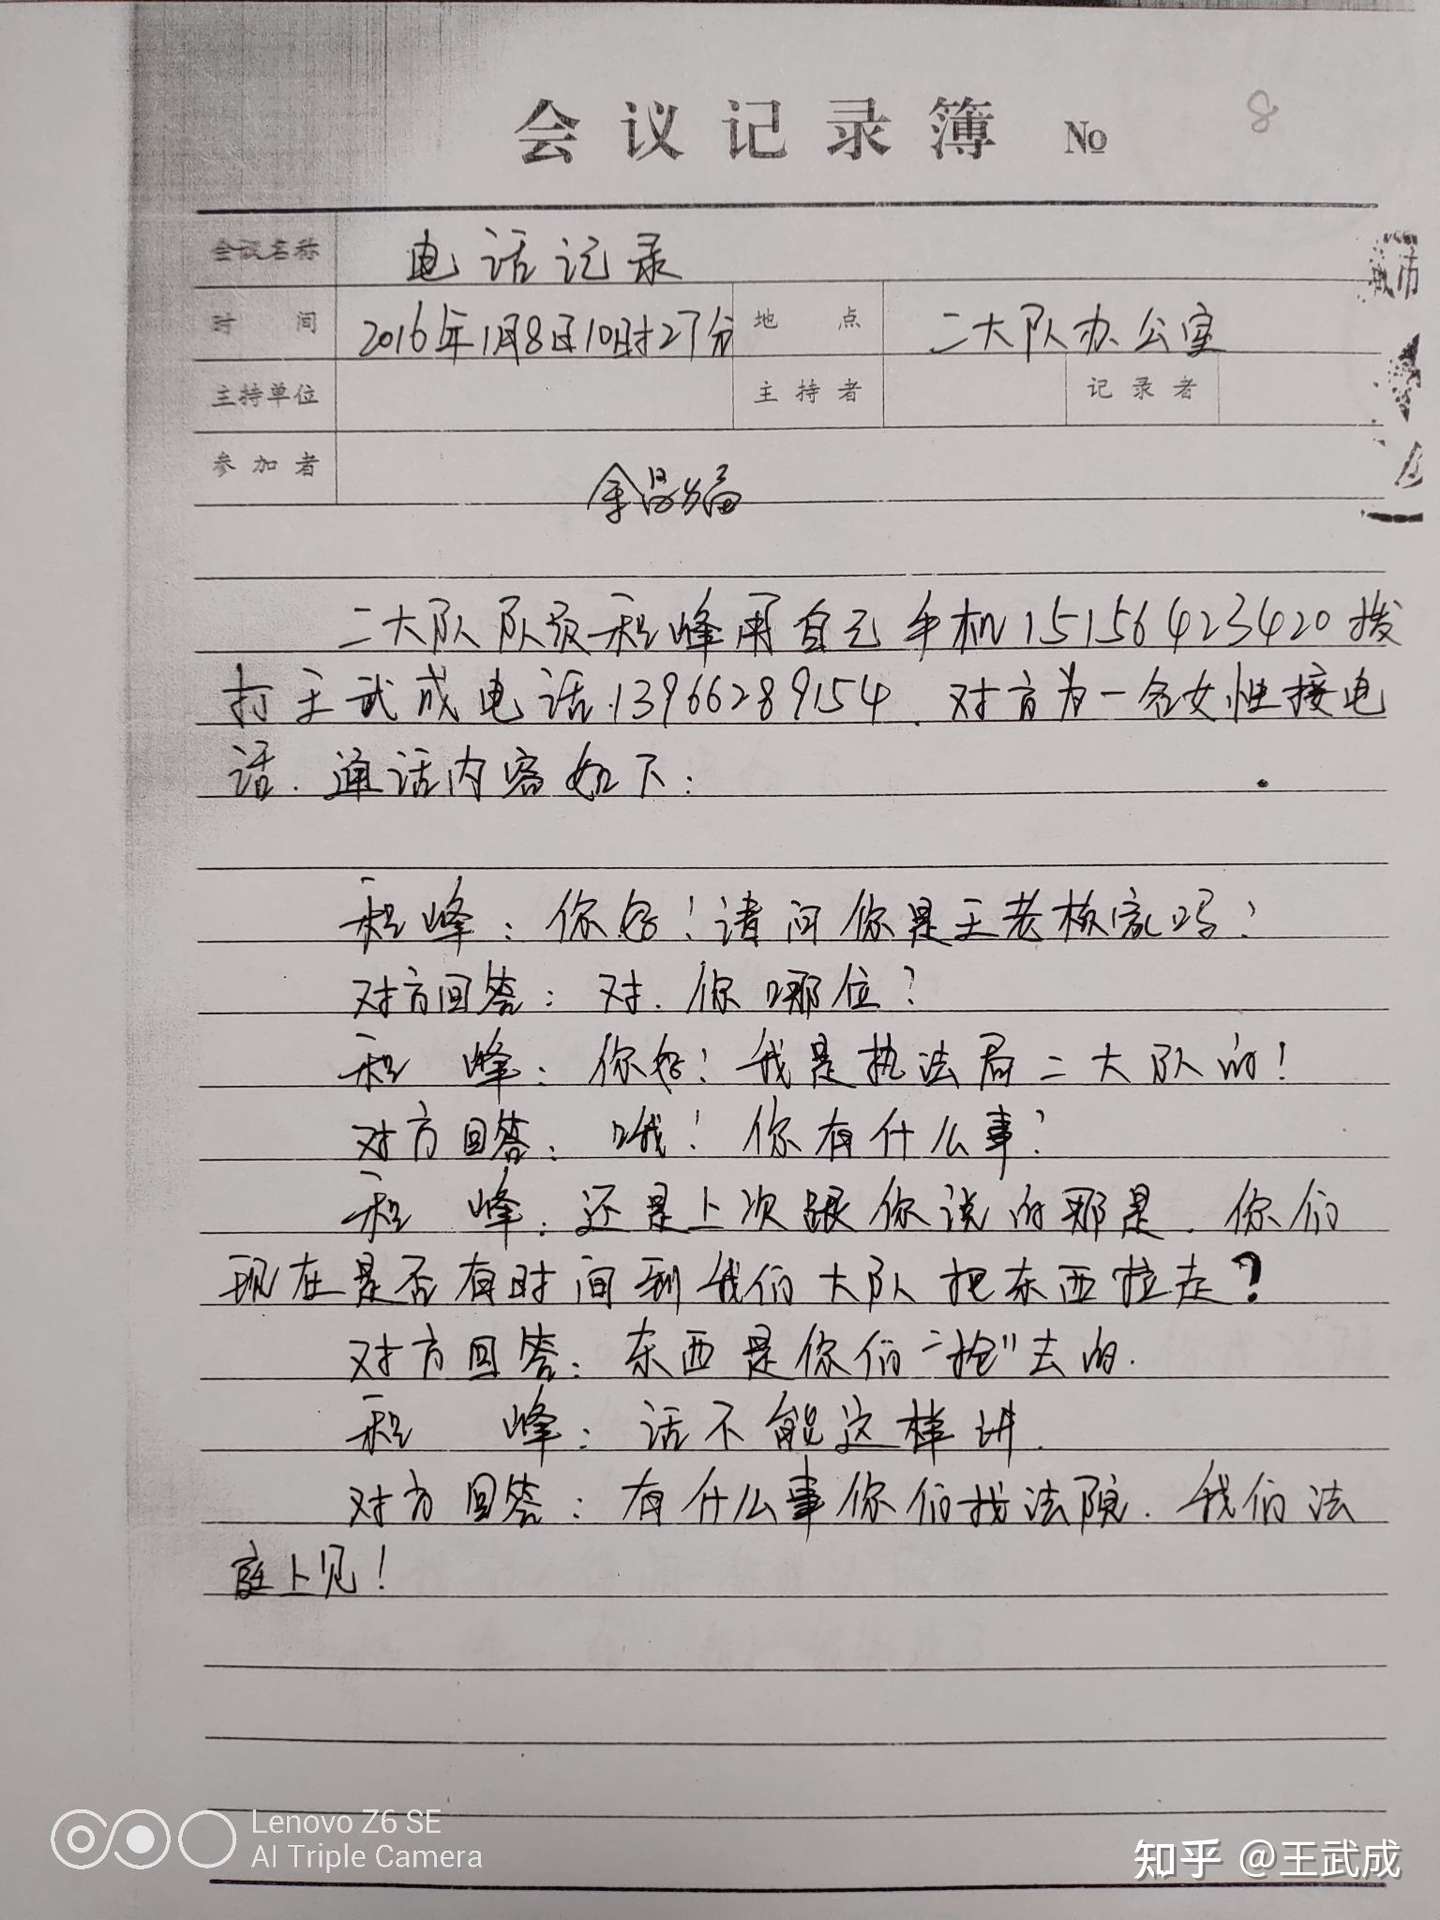 会议记录簿 №
8
会议名称 电话记录
时间 2016年1月8日10时27分 地点 二大队办公室
主持单位 主持者 记录者
参加者
二大队队员程峰用自己手机15156423420拨
打王武成电话.13966289154.对方为一名女性接电
话.通话内容如下:
程峰:你好!请问你是王老板家吗?
对方回答:对.你哪位?
程峰:你好!我是执法局二大队的!
对方回答:哦!你有什么事?
程峰:还是上次跟你说的那是.你们
现在是否有时间到我们大队把东西拉走?
对方回答:东西是你们“抢”去的.
程峰:话不能这样讲.
对方回答:有什么事你们找法院.我们法
庭上见!
Lenovo Z6 SE
AI Triple Camera
知乎 @王武成